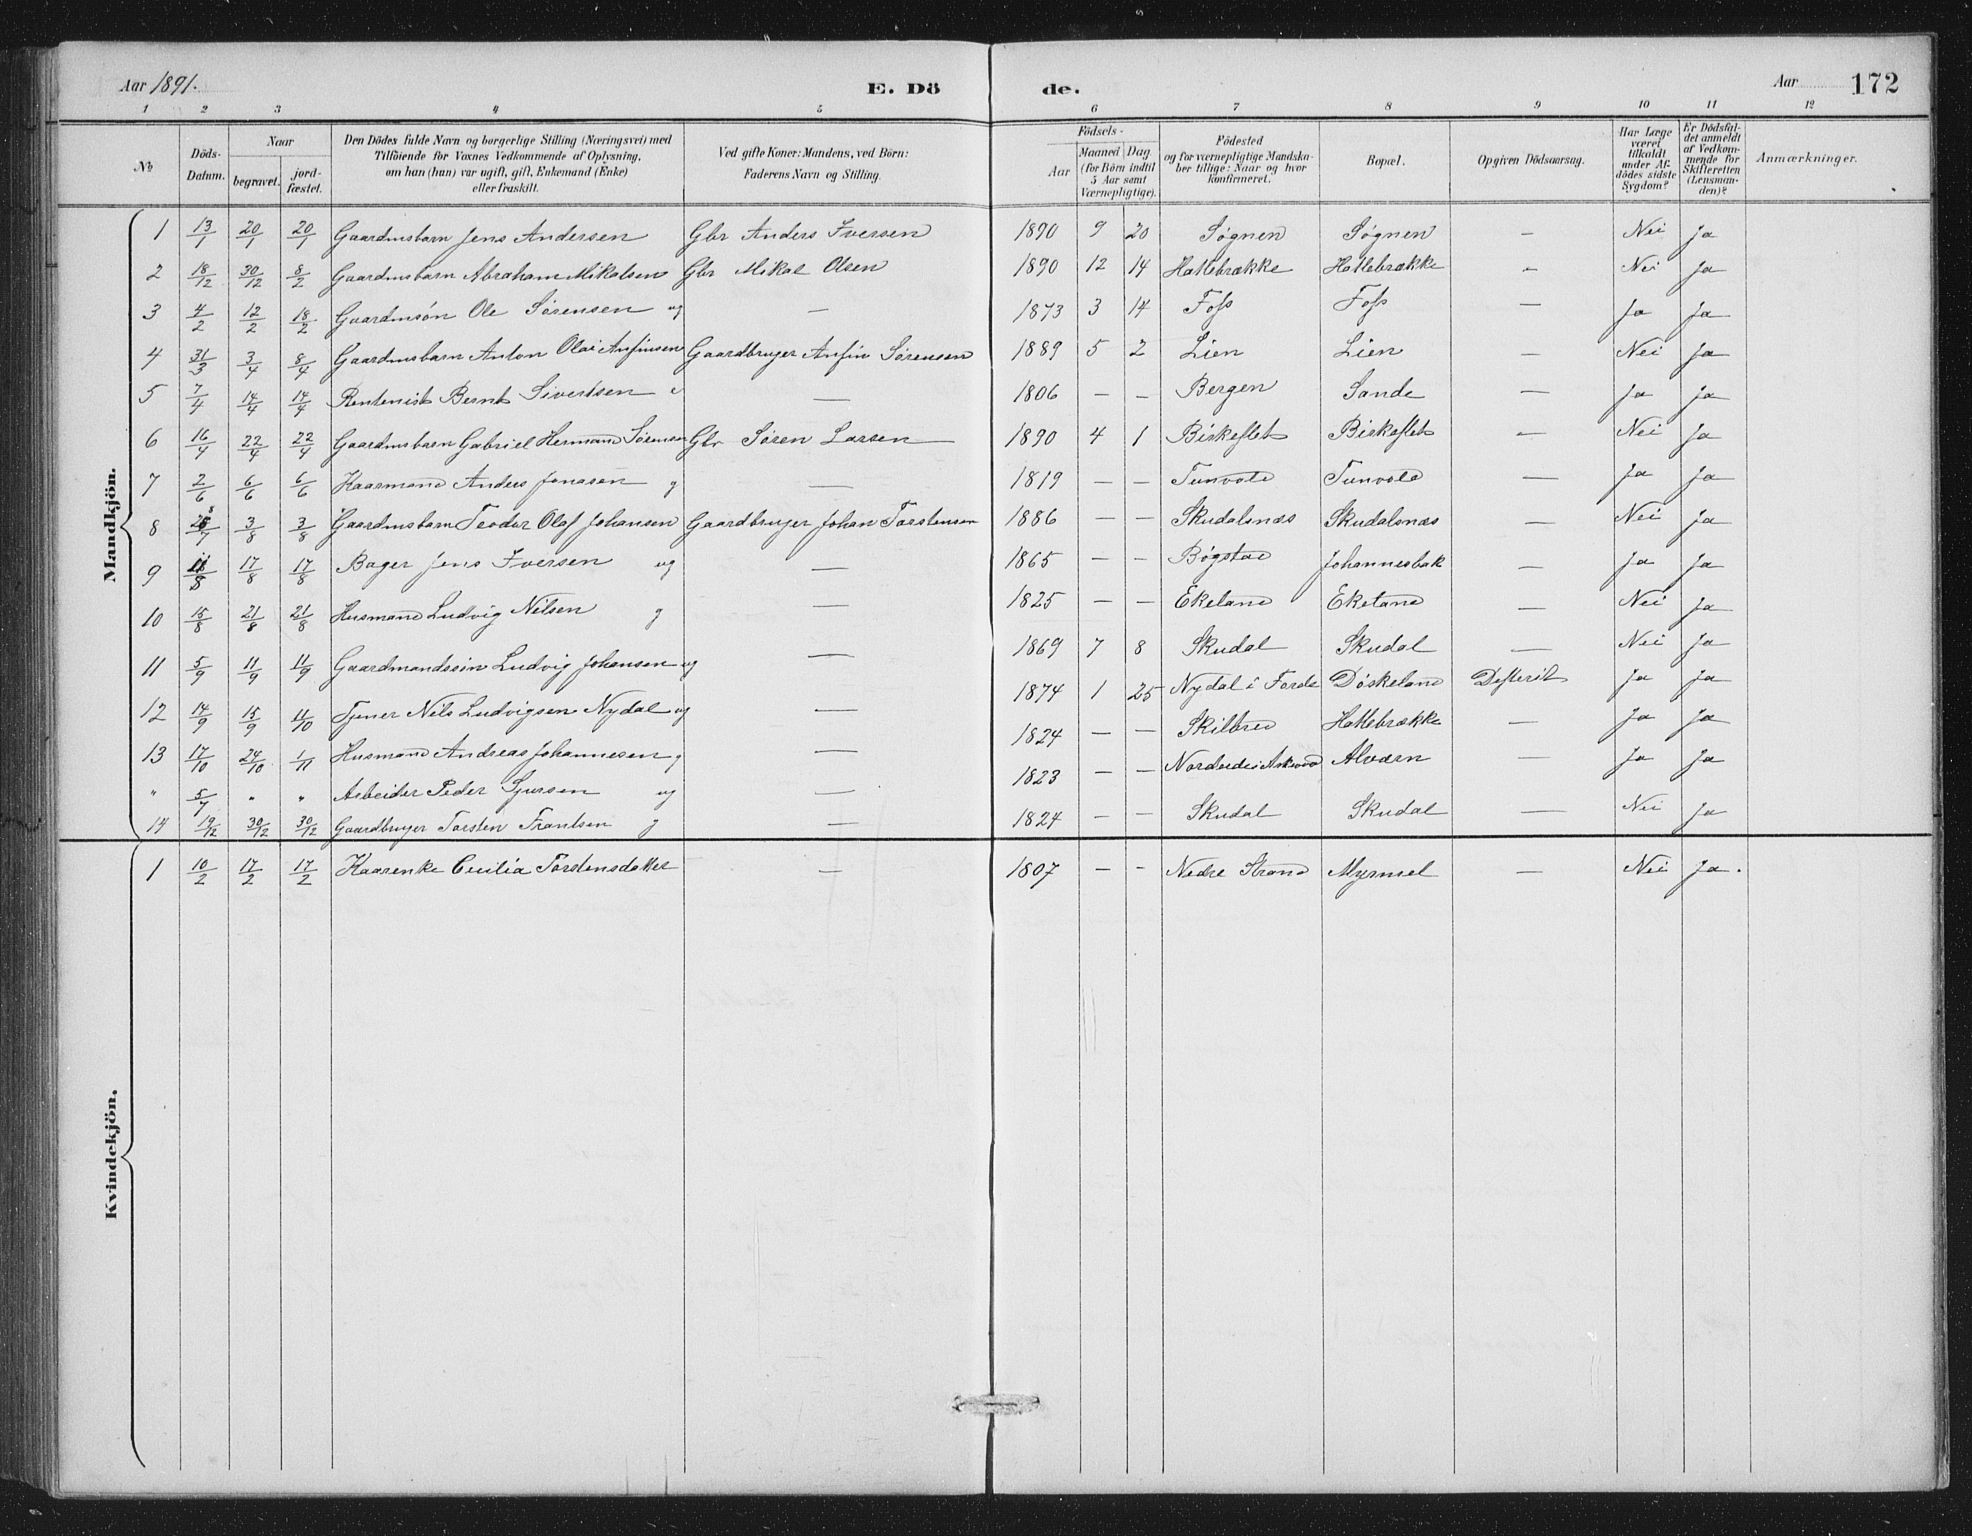 Aar 1891. E. Dö de. Aar 172
1 2 3 4 5 6 7 8 9 10 11 12
No. Döds-Datum. Naar begravet. jordfæstet. Den Dödes fulde Navn og borgerlige Stilling (Næringsvei) med Tilföiende for Voxnes Vedkommende af Oplysning, om han (hun) var ugift, gift, Enkemand (Enke) eller fraskilt. Ved gifte Koner: Mandens, ved Börn: Faderens Navn og Stilling. Födsels- Aar Maaned Dag (for Börn indtil 5 Aar samt Værnepligtige). Födested og for værnepligtige Mandskaber tillige: Naar og hvor konfirmeret. Bopæl. Opgiven Dödsaarsag. Har Læge været tilkaldt under Afdödes sidste Sygdom? Er Dödsfaldet anmeldt af Vedkommende for Skifteretten (Lensmanden)? Anmærkninger.
Mandkjön.
1 13/1 20/1 20/1 Gaardmsbarn Jens Andersen Gbr Anders Iversen 1890 9 20 Søgnen Søgnen — Nei Ja
2 18/12 30/12 8/2 Gaardmsbarn Abraham Mikalsen Gbr Mikal Olsen 1890 12 14 Hattebrække Hattebrække — Nei Ja
3 4/2 12/2 18/2 Gaardmsøn Ole Sørensen ug — 1873 3 14 Foss Foss — Ja Ja
4 31/3 3/4 8/4 Gaardmsbarn Anton Olai Anfinsen Gaardbruger Anfin Sørensen 1889 5 2 Lien Lien — Nei Ja
5 7/4 14/4 14/4 Rentenist Bernt Sivertsen e — 1806 — — Bergen Sande — Ja Ja
6 16/4 22/4 22/4 Gaardmsbarn Gabriel Hermand Sørensen Gbr Søren Larsen 1890 4 1 Birkeflet Birkeflet — Nei Ja
7 2/6 6/6 6/6 Kaarmand Anders Jonasen g — 1819 — — Tunvold Tunvold — Ja Ja
8 /7 3/8 3/8 Gaardmsbarn Teodor Olaf Johansen Gaardbruger Johan Torstensen 1886 — — Skudalsnæs Skudalsnæs — Nei Ja
9 /8 17/8 17/8 Bager Jens Iversen ug — 1865 — — Bøgstad Johannesbak — Ja Ja
10 15/8 21/8 21/8 Husmand Ludvig Nilsen g — 1825 — — Ekeland Ekeland — Nei Ja
11 5/9 11/9 11/9 Gaardmandssøn Ludvig Johansen ug — 1869 7 8 Skudal Skudal — Nei Ja
12 14/9 15/9 11/10 Tjener Nils Ludvigsen Nydal ug — 1874 1 25 Nydal i Førde Døskeland Difterit Ja Ja
13 17/10 24/10 1/11 Husmand Andreas Johannesen g — 1824 — — Skilbred Hattebrække — Ja Ja
" 5/7 " " Arbeider Peder Sjursen ug — 1823 — — Alværn — Ja Ja
14 19/12 30/12 30/12 Gaardbruger Torsten Frantsen g — 1824 — — Skudal Skudal — Nei Ja
Kvindekjön.
1 10/2 17/2 17/2 Kaarenke Cecilia Torstensdatter — 1807 — — Nedre Strand Myrmel — Nei Ja.